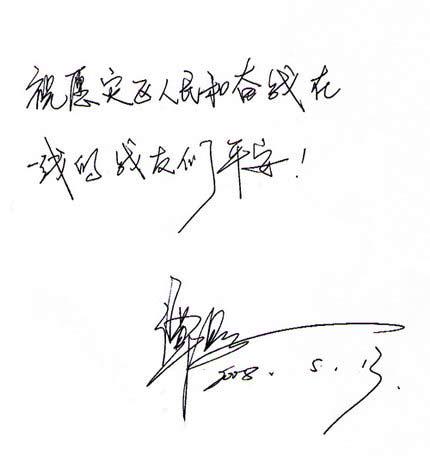 祝愿灾区人民和奋战在
一线的战友们平安！
2008.5.13.